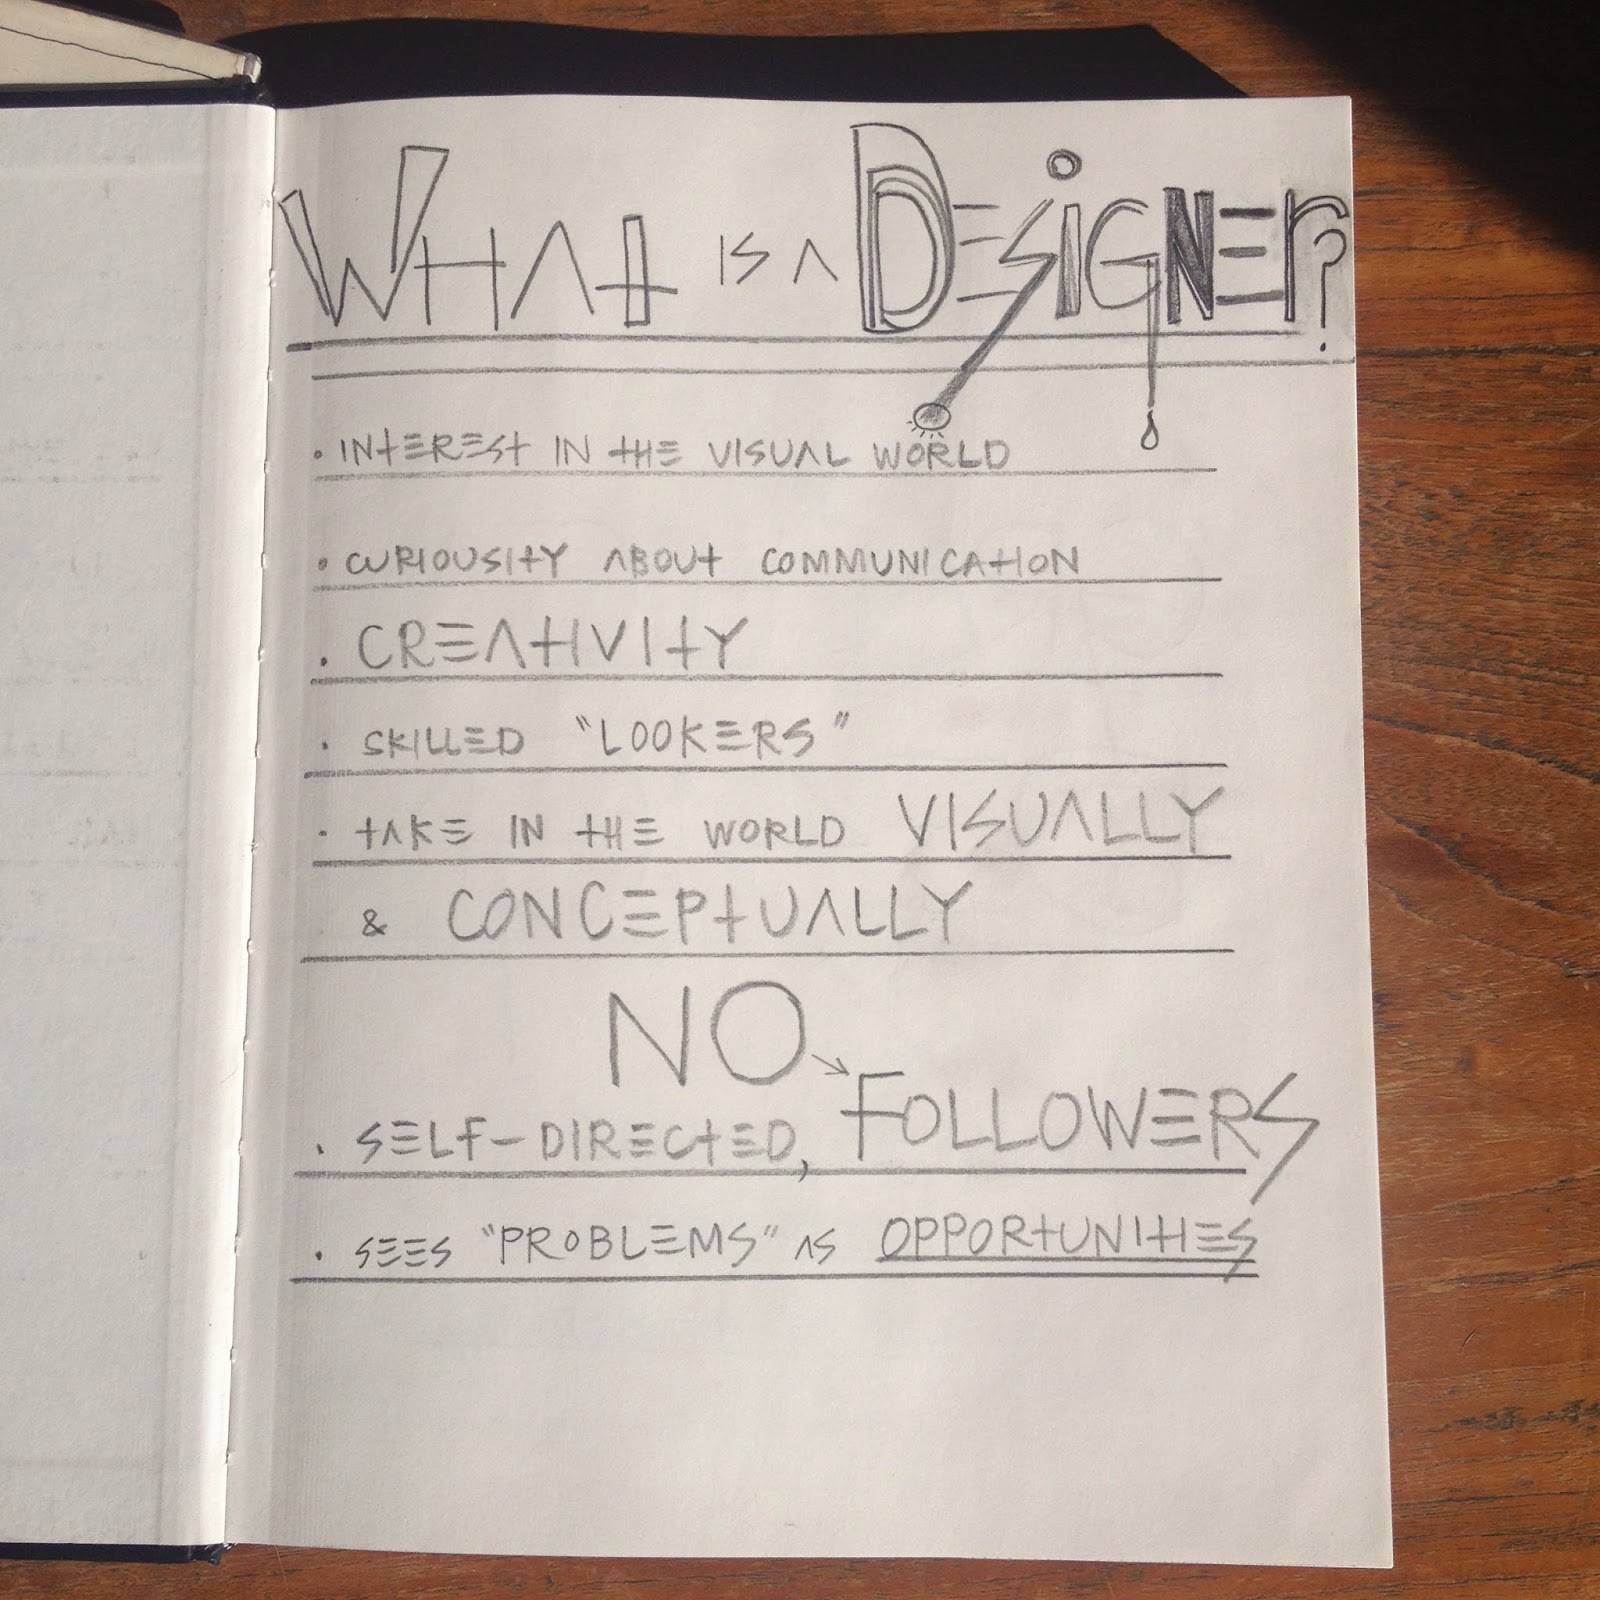 WHAT IS A DESiGNEr?
• INTEREST IN THE VISUAL WORLD
• CURIOUSITY ABOUT COMMUNICATION
• CREATIVITY
• SKILLED "LOOKERS"
• TAKE IN THE WORLD VISUALLY
& CONCEPTUALLY
NO →
• SELF-DIRECTED, FOLLOWERS
• SEES "PROBLEMS" AS OPPORTUNITIES